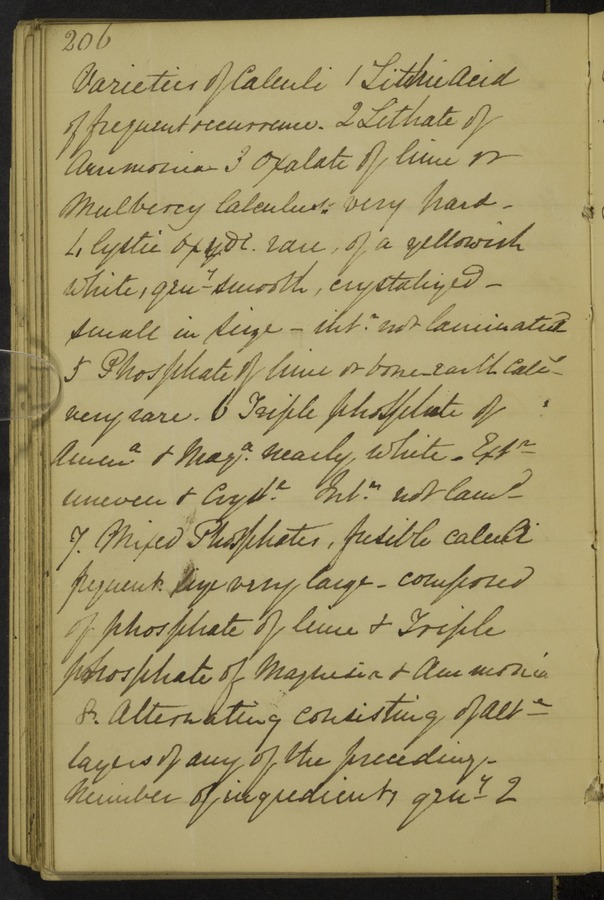 206
Varieties of Calculi 1 Lithic Acid
of frequent occurrence. 2 Lithate of
Ammonia 3 Oxalate of lime or
Mulberry Calculus: very hard -
4 Cystic Oxyde. rare, of a yellowish
white, genly smooth, crystalized -
small in size - intr. not laminated
5 Phosphate of lime or bone earth Calcs -
very rare. 6 Triple phosphate of
Amma & Maga. nearly white - Extr
uneven & Crystn Intr. not lamd
7. Mixed Phosphates, fusible calculi
frequent. Size very large - composed
of phosphate of lime & Triple
phosphate of Magnesia & Ammonia
8. Alternating consisting of alte
layers of any of the preceding -
Number of ingredients genly 2